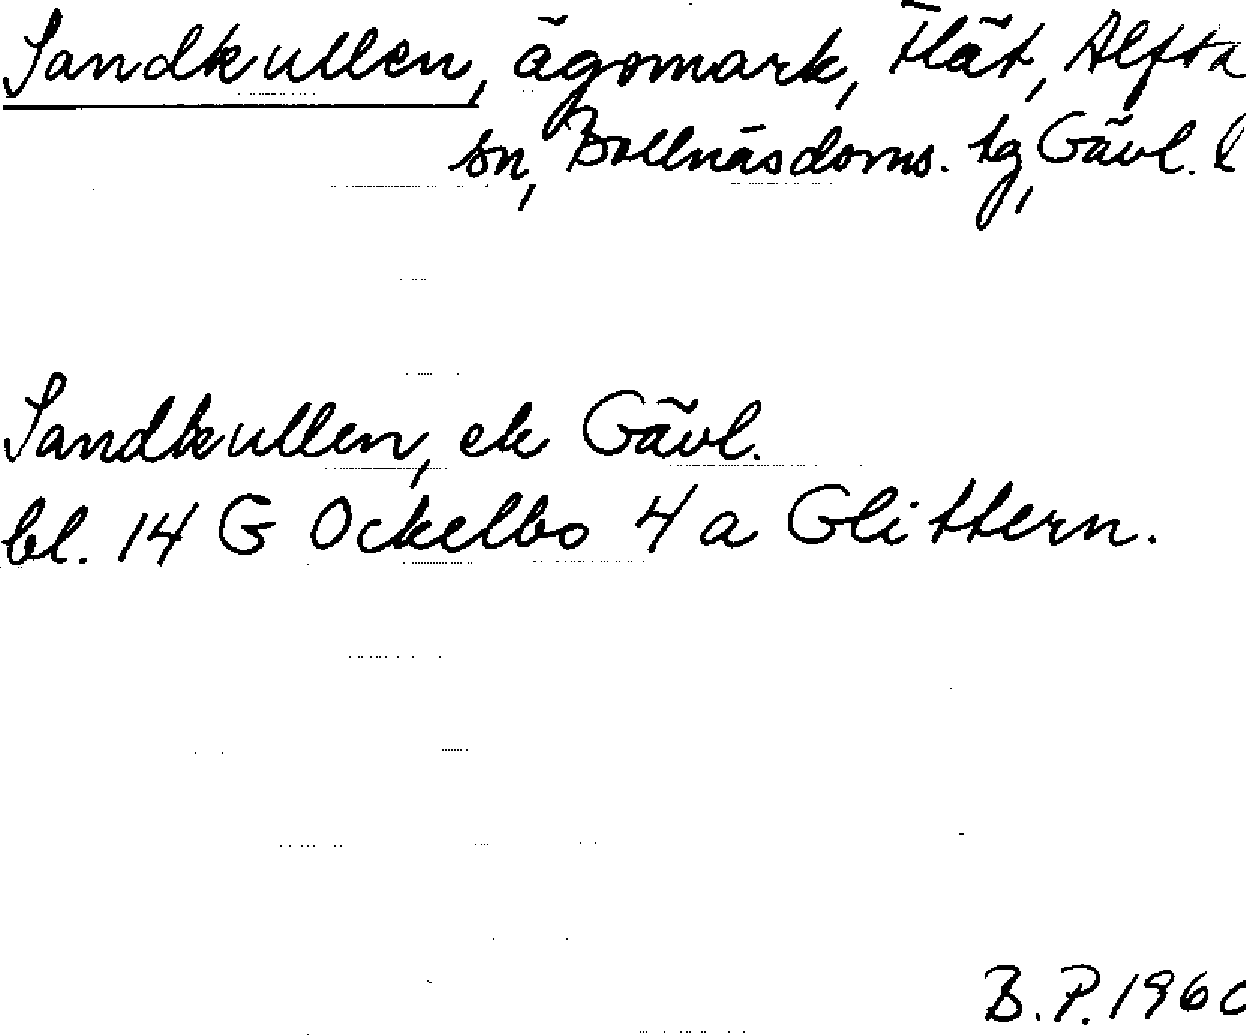 Sandkullen, ägomark, Flät, Alfta
sn, Bollnäsdoms. tg, Gävl. l
Sandkullen, ek Gävl.
bl. 14 G Ockelbo 4 a Glittern.
B.P. 1960